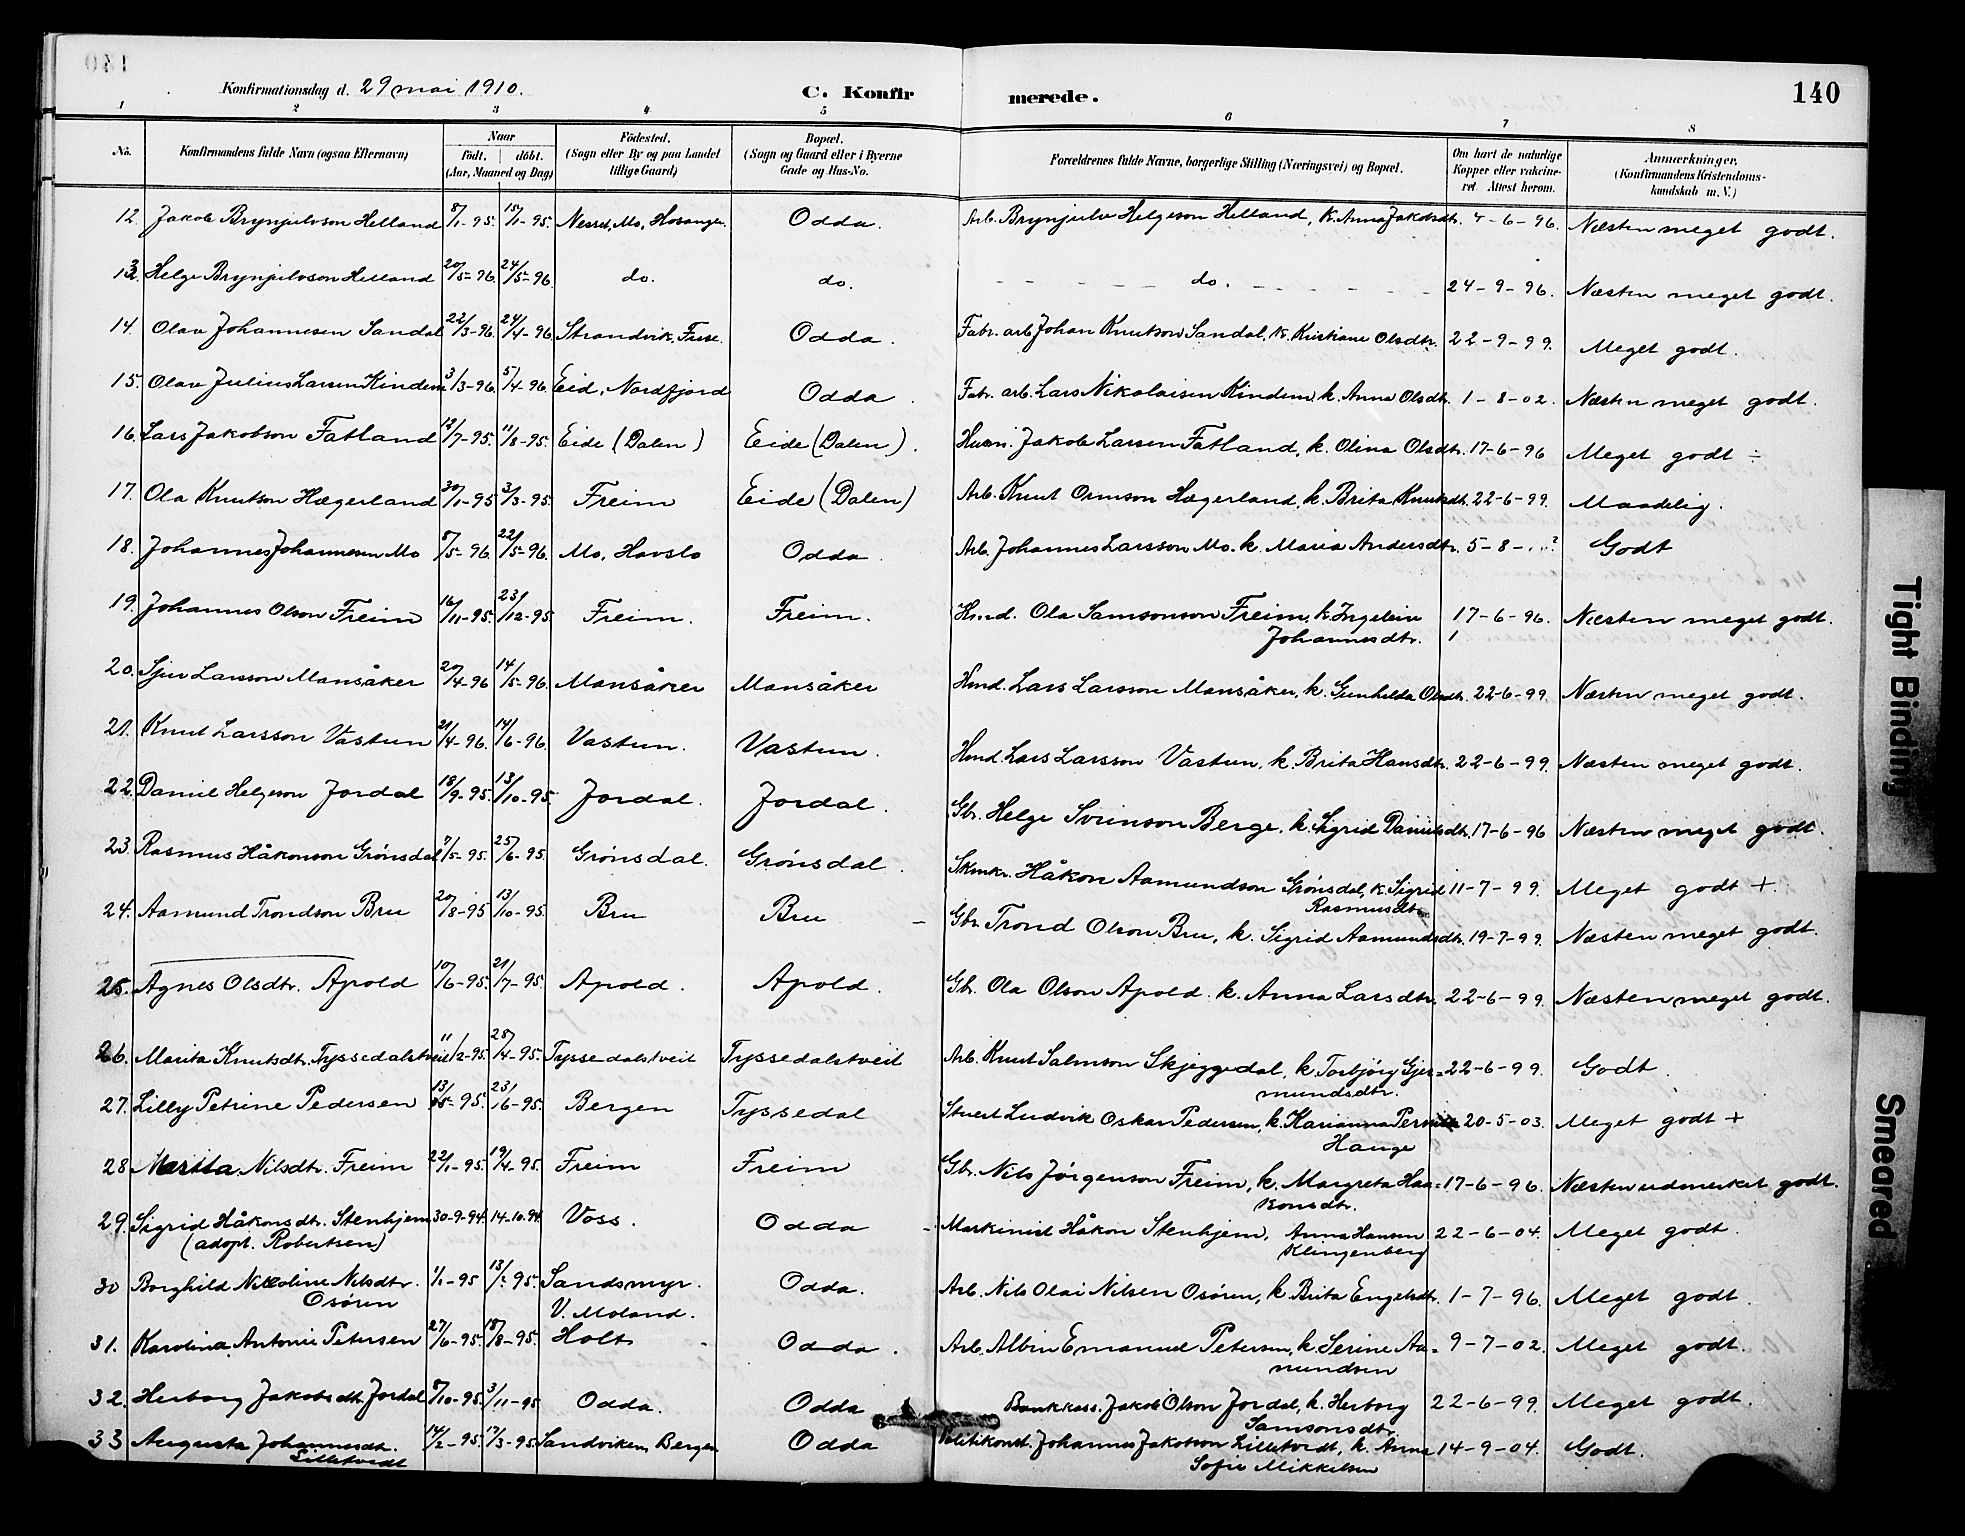 140
Konfirmationsdag d. 29 mai 1910. C. Konfirmerede.
1 2 3 4 5 6 7 8
No. Konfirmandens fulde Navn (ogsaa Efternavn) Naar født. døbt. (Aar, Maaned og Dag) Fødested. (Sogn eller By og paa Landet tillige Gaard) Bopæl. (Sogn og Gaard eller i Byerne Gade og Hus-No. Forældrenes fulde Navne, borgerlige Stilling (Næringsvei) og Bopæl. Om havt de naturlige Kopper eller vakcineret. Attest herom. Anmærkninger, (Konfirmandens Kristendomskundskab m. V.)
12. Jakob Brynjulvson Helland 8/1-95. 15/1-95. Nesse, Mo, Hosanger Odda. Arb. Brynjulv Helgeson Helland, k. Anna Jakobsdtr. 4-6-96. Næsten meget godt.
13. Helge Brynjulvson Helland 20/5-96. 24/5-96. do. do. do. 24-9-96. Næsten meget godt.
14. Olav Johannesen Sandal 22/3-96. 24/4-96. Strandvik, Fuse. Odda. Fabr. arb. Johan Knutson Sandal, k. Kristiane Olsdtr. 22-9-99. Meget godt.
15. Olav Julius Larsen Kindem 3/3-96. 5/4-96. Eid, Nordfjord Odda. Fabr. arb. Lars Nikolaisen Kindem, k. Anna Olsdtr. 1-8-02. Næsten meget godt.
16. Lars Jakobson Fatland 12/7-95. 11/8-95. Eide (Dalen) Eide (Dalen). Jakob Larsen Fatland, k. Olina Olsdtr. 17-6-96 Meget godt ÷
17. Ola Knutson Hægerland 30/1-95 3/3-95. Freim Eide (Dalen) Arb. Knut Ormson Hægerland, k. Brita Knutsdt. 22-6-99. Maadelig.
18. Johannes Johannesen Mo 8/5-96. 22/5-96. Mo, Havslo Odda. Arb. Johannes Larsson Mo. k. Maria Andersdtr. 5-8-...? Godt
19. Johannes Olson Freim 16/11-95. 23/12-95. Freim. Freim. Hmd. Ola Samsonson Freim, k. Ingeleiv 17-6-96. Næsten meget godt.
Johannesdtr.
20. Sjur Larsson Mansåker 20/4-96 14/5-96. Mansåker Mansåker Hmd. Lars Larsson Mansåker, k. Gunhilda Olsdt. 22-6-99. Næsten meget godt.
21. Knut Larsson Vastun 21/4-96. 14/6-96. Vastun. Vastun. Hmd. Lars Larsson Vastun, k. Brita Hansdtr. 22-6-99. Næsten meget godt.
22. Daniel Helgeson Jordal 18/9-95. 13/10-95. Jordal. Jordal. Gbr. Helge Sveinson Berge, k. Sigrid Danielsdt. 17-6-96 Næsten meget godt.
23. Rasmus Håkonson Grönsdal 7/5-95. 25/6-95. Grönsdal. Grönsdal. Skmkr. Håkon Aamundson Grönsdal, k. Sigrid 11-7-99. Meget godt +
Rasmusdtr.
24. Aamund Trondson Bru 20/8-95 13/10-95. Bru Bru Gbr. Trond Olson Bru, k. Sigrid Aamundsdtr. 19-7-99. Næsten meget godt.
25. Agnes Olsdtr. Apold 10/6-95. 21/7-95. Apold. Apold. Gbr. Ola Olson Apold. k. Anna Larsdtr. 22-6-99. Næsten meget godt.
26. Marita Knutsdtr. Tyssedalstveit 11/2-95. 28/4-95. Tyssedalstveit Tyssedalstveit Arb. Knut Salmson Skjeggedal, k. Torbjörg Gjer= 22-6-99. Godt.
mundsdtr.
27. Lilly Petrine Pedersen 13/5-95. 23/6-95. Bergen Tyssedal Stuert Ludvik Oskar Pedersen, k. Karianna 20-5-03. Meget godt +
Hauge
28 Marita Nilsdtr. Freim 22/1-95. 19/4-95. Freim Freim Gbr. Nils Jörgenson Freim, k. Margreta Haa= 17-6-96. Næsten udmerket godt.
konsdtr.
29. Sigrid Håkonsdtr. Stenhjem 30-9-94. 14-10-94. Voss. Odda Maskinist Håkon Stenhjem, Anna Hansen 22-6-04. Meget godt.
(adopt. Robertsen) Klingenberg
30 Borghild Nicoline Nilsdtr. 1/1-95 13/ -95. Sandsmyr. Odda. Arb. Nils Olai Nilsen Osören, k. Brita Engelsdtr. 1-7-96. Meget godt.
Osören V. Moland.
31. Karolina Antonie Petersen 27/6-95. 18/8-95. Holt Odda. Arb. Albin Emanuel Petersen, k. Serine Aa= 9-7-02. Meget godt.
mundsen
32. Herborg Jakobsdt. Jordal 8/10-95. 3/11-95 Odda. Odda Bankkass. Jakob Olson Jordal, k. Herborg 22-6-99. Meget godt.
Samsonsdtr.
33 Augusta Johannesdt. 14/2-95. 17/3-95. Sandviken, Bergen Odda Politikonst. Johannes Jakobson Lilletvedt, k. Anna 14-9-04. Godt.
Lilletvedt Sofie Mikkelsen
Tight Binding
Smeared